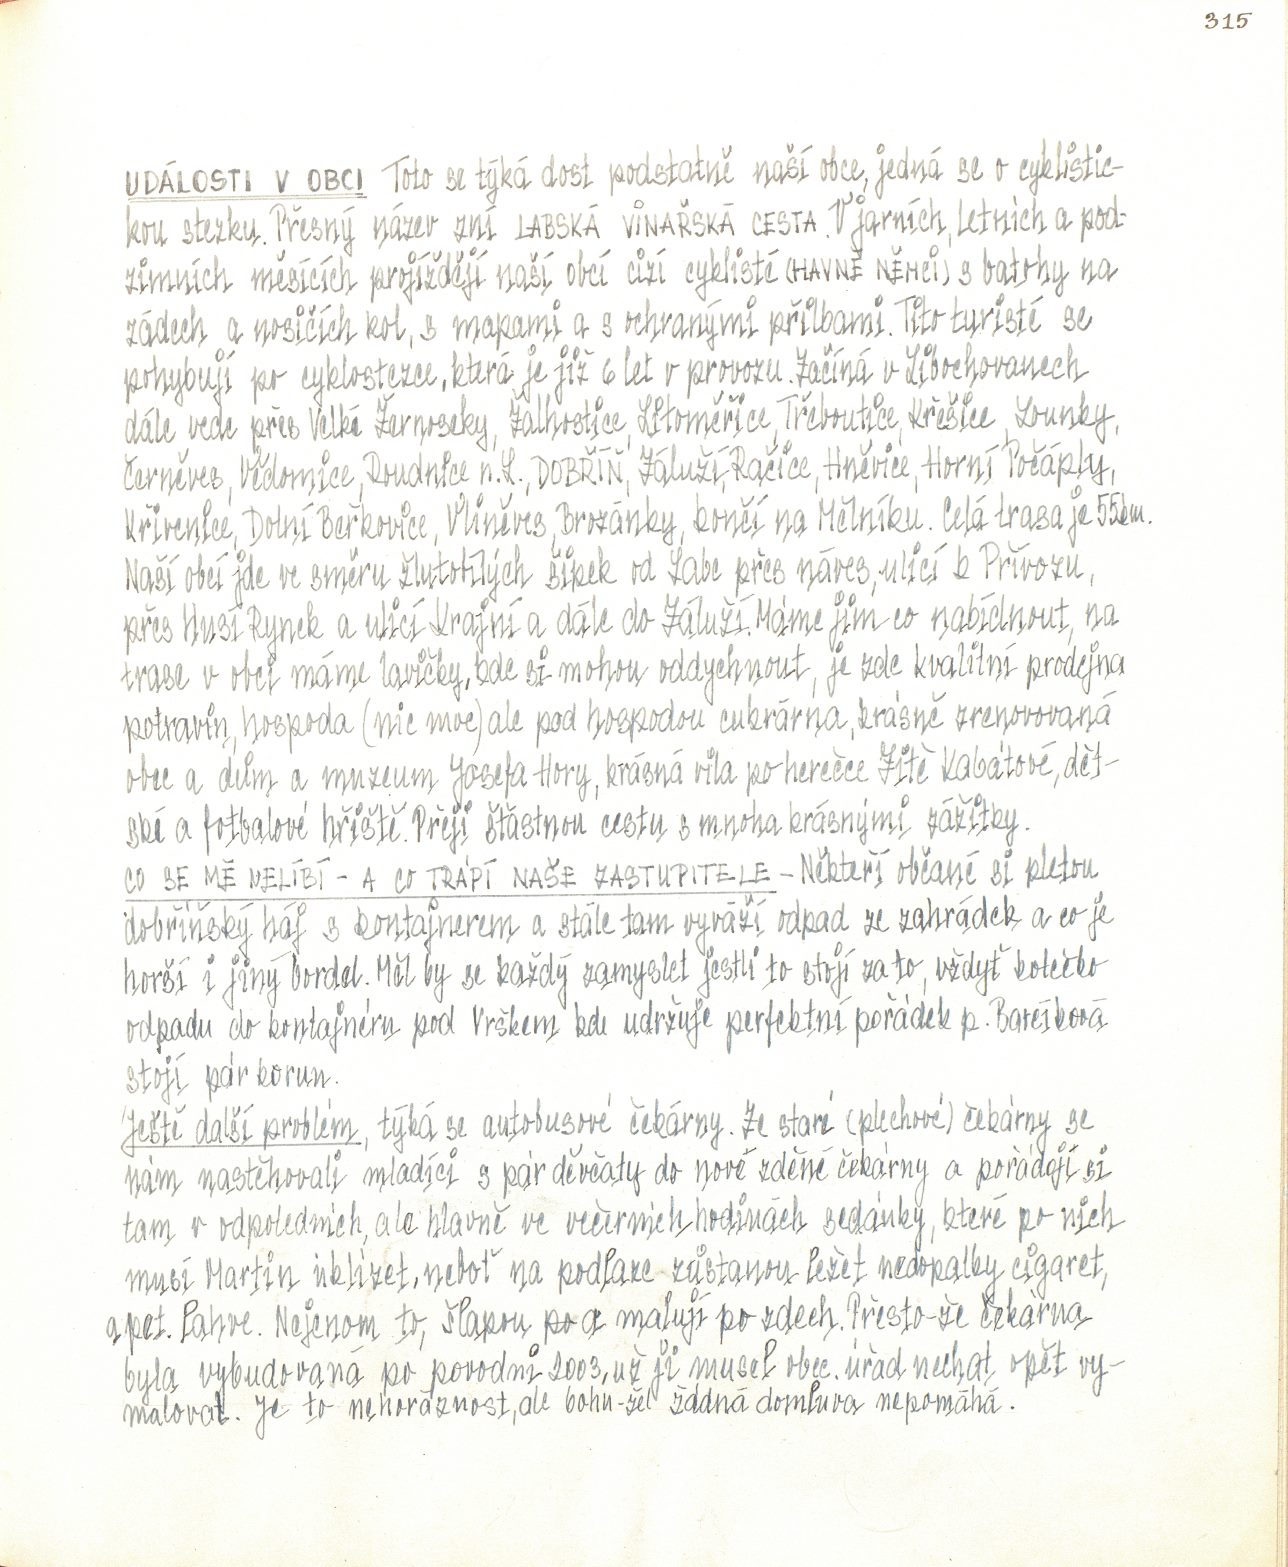 315
UDÁLOSTI V OBCI Toto se týká dost podstatně naší obce, jedná se o cyklistic-
kou stezku. Přesný název zní LABSKÁ VINAŘSKÁ CESTA. V jarních, letních a pod-
zimních měsících projíždějí naší obcí cizí cyklisté (HAVNĚ NĚMCI) s batohy na
zádech a nosičích kol, s mapami a s ochranými přilbami. Tito turisté se
pohybují po cyklostezce, která je již 6 let v provozu. Začíná v Libochovanech
dále vede přes Velké Žernoseky, Žalhostice, Litoměřice, Třeboutice, Křešice, Lounky,
Černěves, Vědomice, Roudnice n.L., DOBŘÍŇ, Záluží, Račice, Hněvice, Horní Počáply,
Křivenice, Dolní Beřkovice, Vliněves, Brozánky, končí na Mělníku. Celá trasa je 55km.
Naší obcí jde ve směru žlutobílých šipek od Labe přes náves, ulicí k Přívozu,
přes Husí Rynek a ulicí Krajní a dále do Záluží. Máme jim co nabídnout, na
trase v obci máme lavičky, kde si mohou oddychnout, je zde kvalitní prodejna
potravin, hospoda (nic moc) ale pod hospodou cukrárna, krásně zrenovovaná
obec a dům a muzeum Josefa Hory, krásná vila po herečce Zitě Kabátové, dět-
ské a fotbalové hřiště. Přeji šťastnou cestu s mnoha krásnými zážitky.
CO SE MĚ NELÍBÍ - A CO TRÁPÍ NAŠE ZASTUPITELE - Někteří občané si pletou
dobříňský háj s kontajnerem a stále tam vyváží odpad ze zahrádek a co je
horší i jiný bordel. Měl by se každý zamyslet jestli to stojí za to, vždyť kolečko
odpadu do kontajnéru pod Vrškem kde udržuje perfektní pořádek p. Barcíková
stojí pár korun.
Ještě další problém, týká se autobusové čekárny. Ze staré (plechové) čekárny se
nám nastěhovali mladíci s pár děvčaty do nové zděné čekárny a pořádají si
tam v odpoledních, ale hlavně ve večerních hodinách sedánky, které po nich
musí Martin uklízet, neboť na podlaze zůstanou ležet nedopalky cigaret,
a pet. lahve. Nejenom to, šlapou po a malují po zdech. Přesto-že čekárna
byla vybudovaná po povodni 2003, už ji musel obec. úřad nechat opět vy-
malovat. Je to nehoráznost, ale bohu-žel žádná domluva nepomáhá.